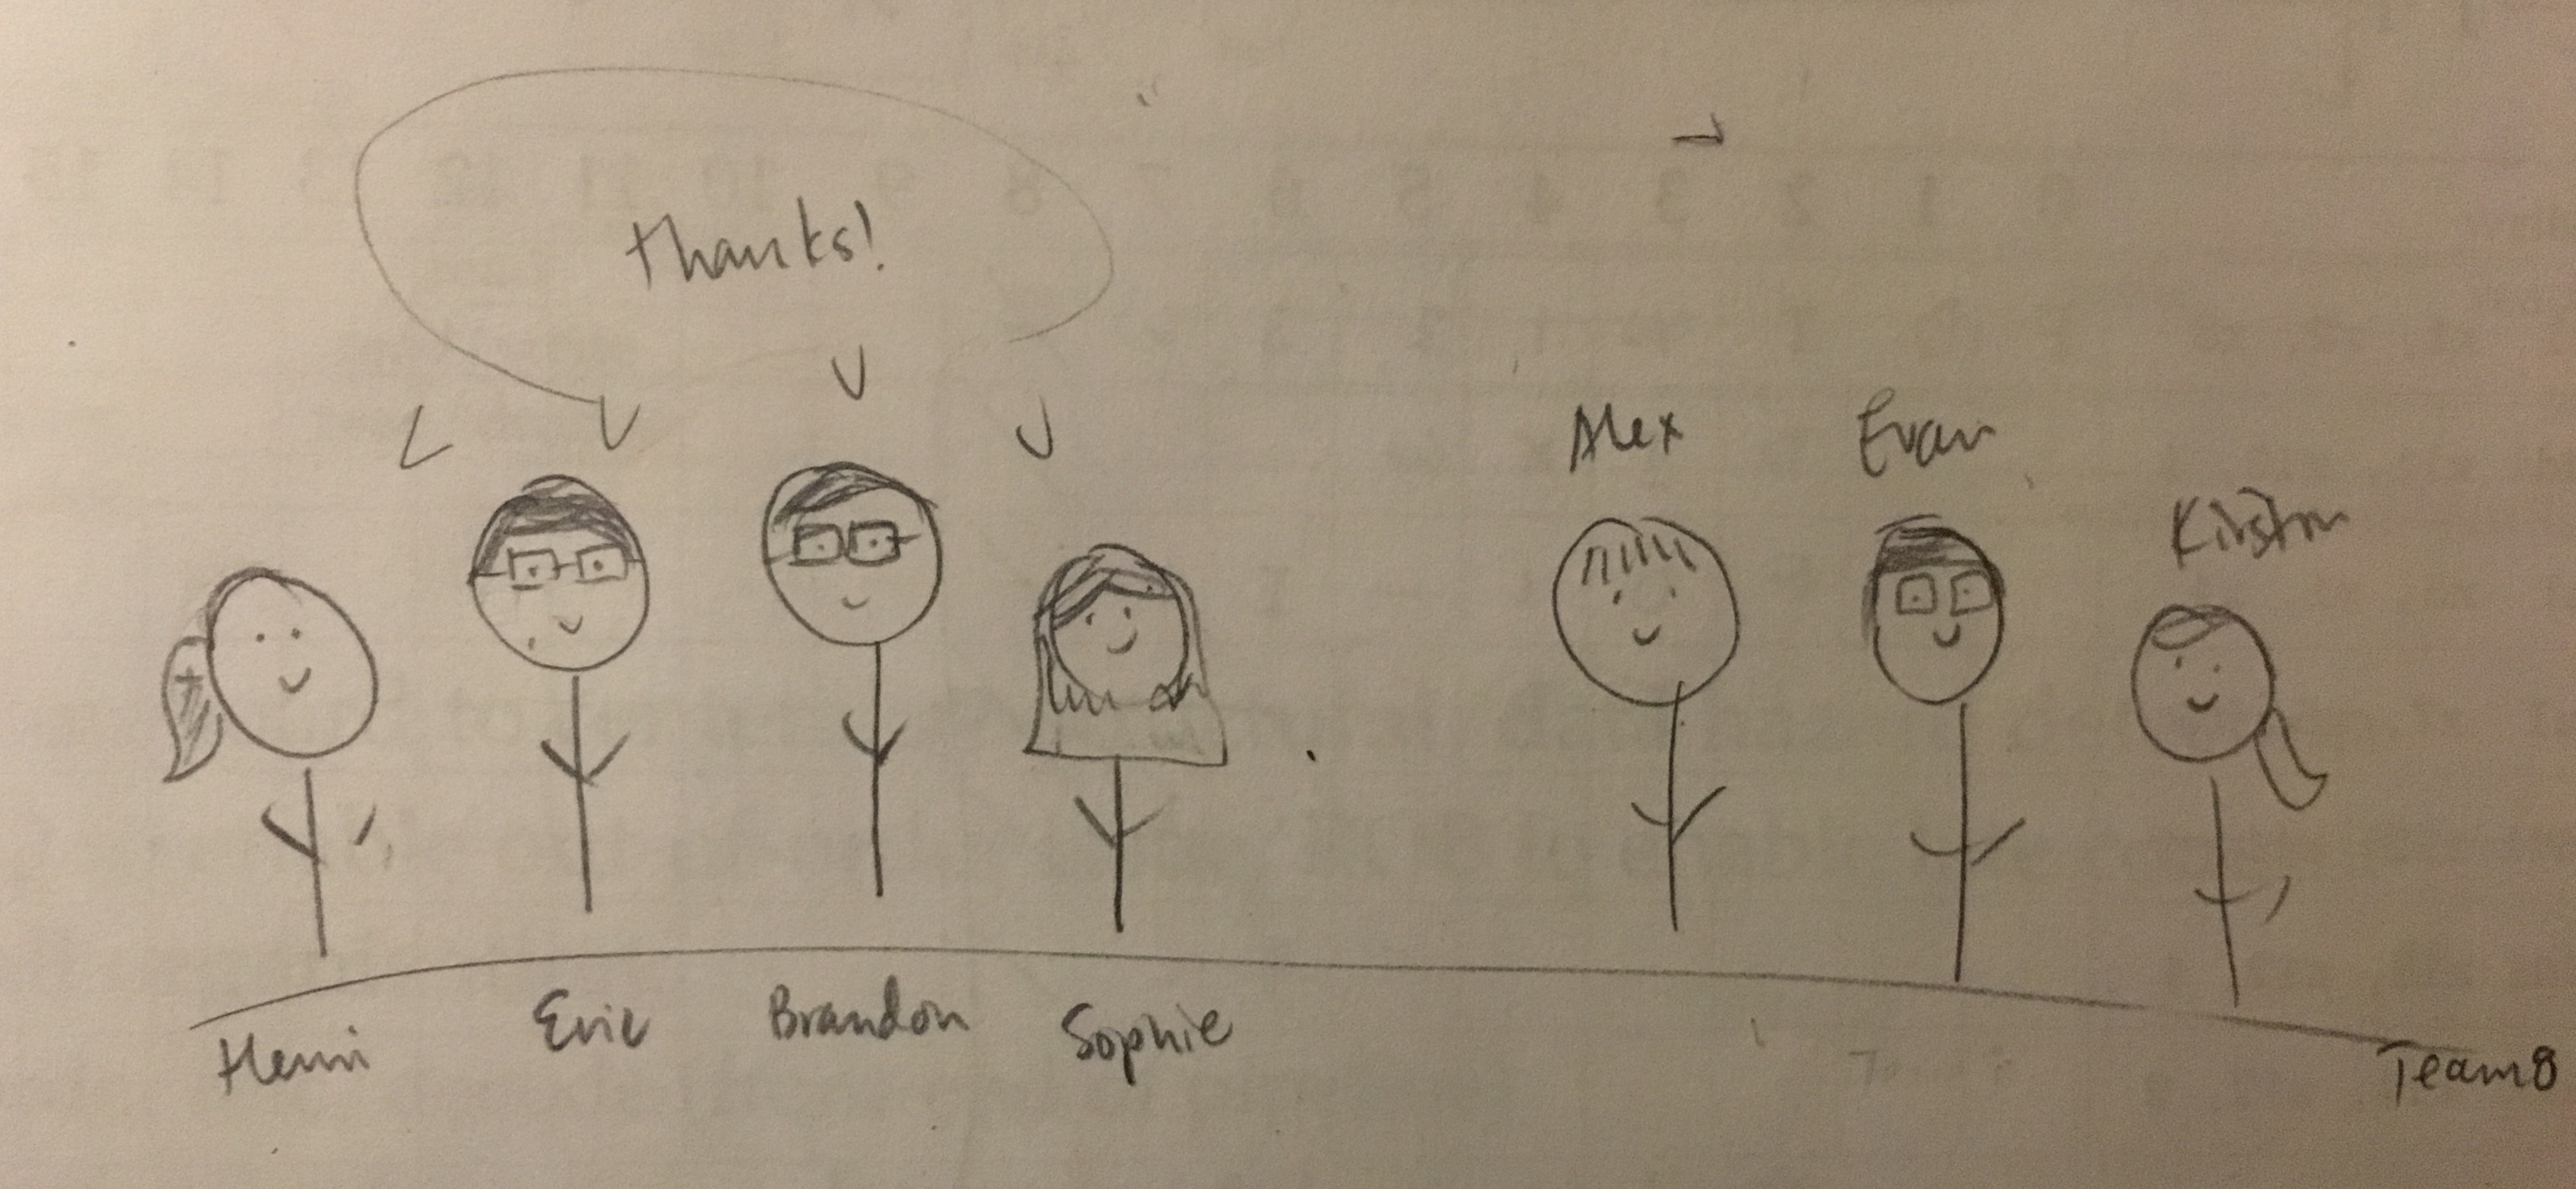 thanks!
Alex
Evan
Kirstin
Henri
Eric
Brandon
Sophie
Team8